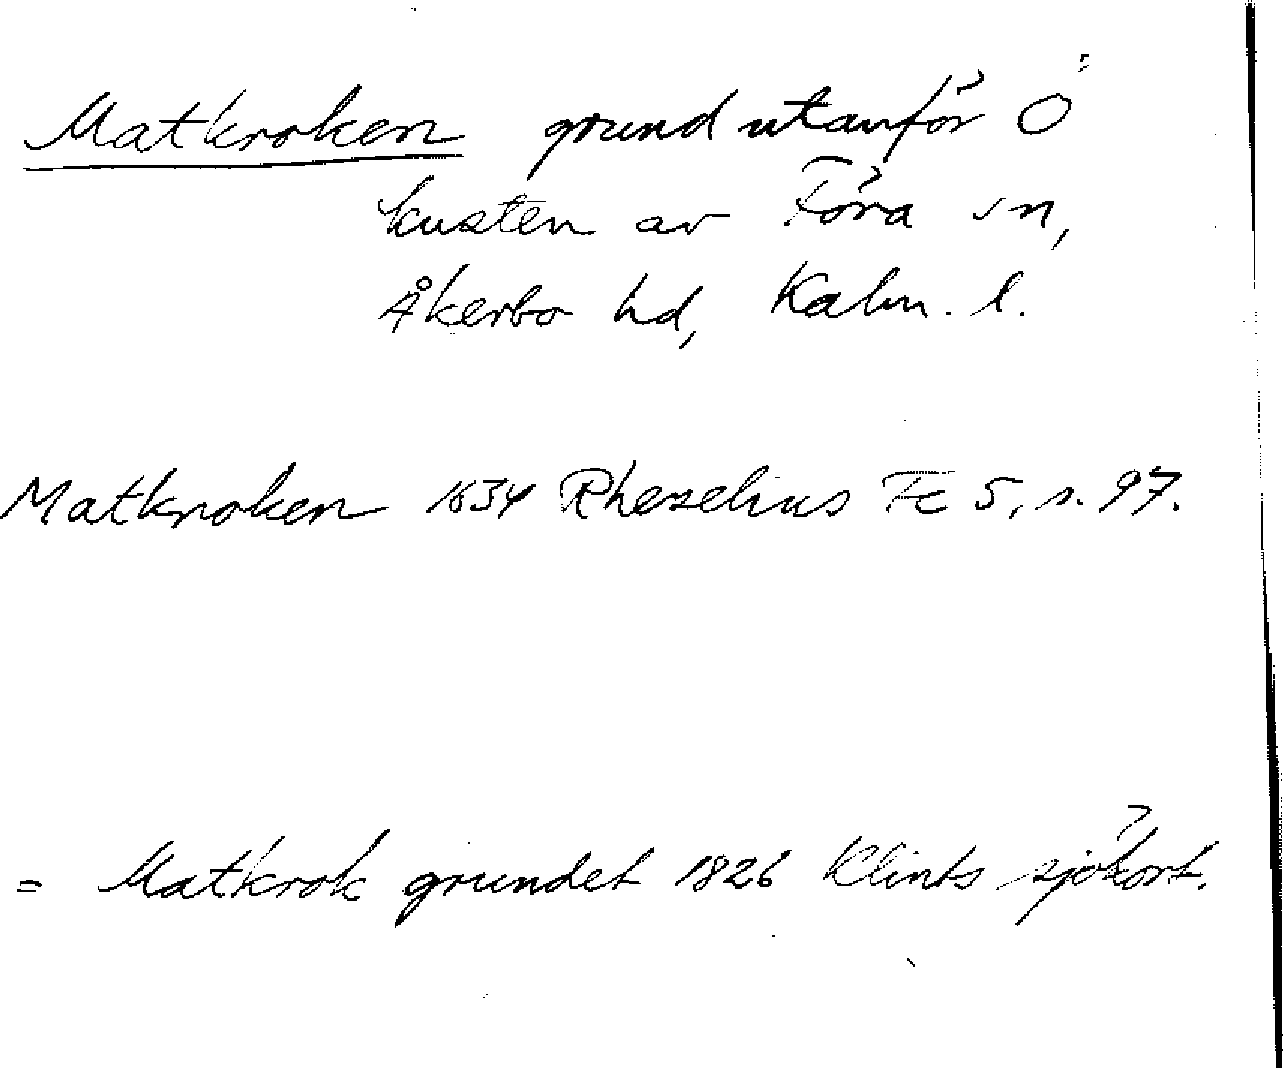 Matkroken grund utanför Ö
kusten av Föra sn,
Åkerbo hd, Kalm. l.
Matkroken 1634 Rhezelius Fc 5, s. 97.
= Matkrok grundet 1826 Klints sjökort.